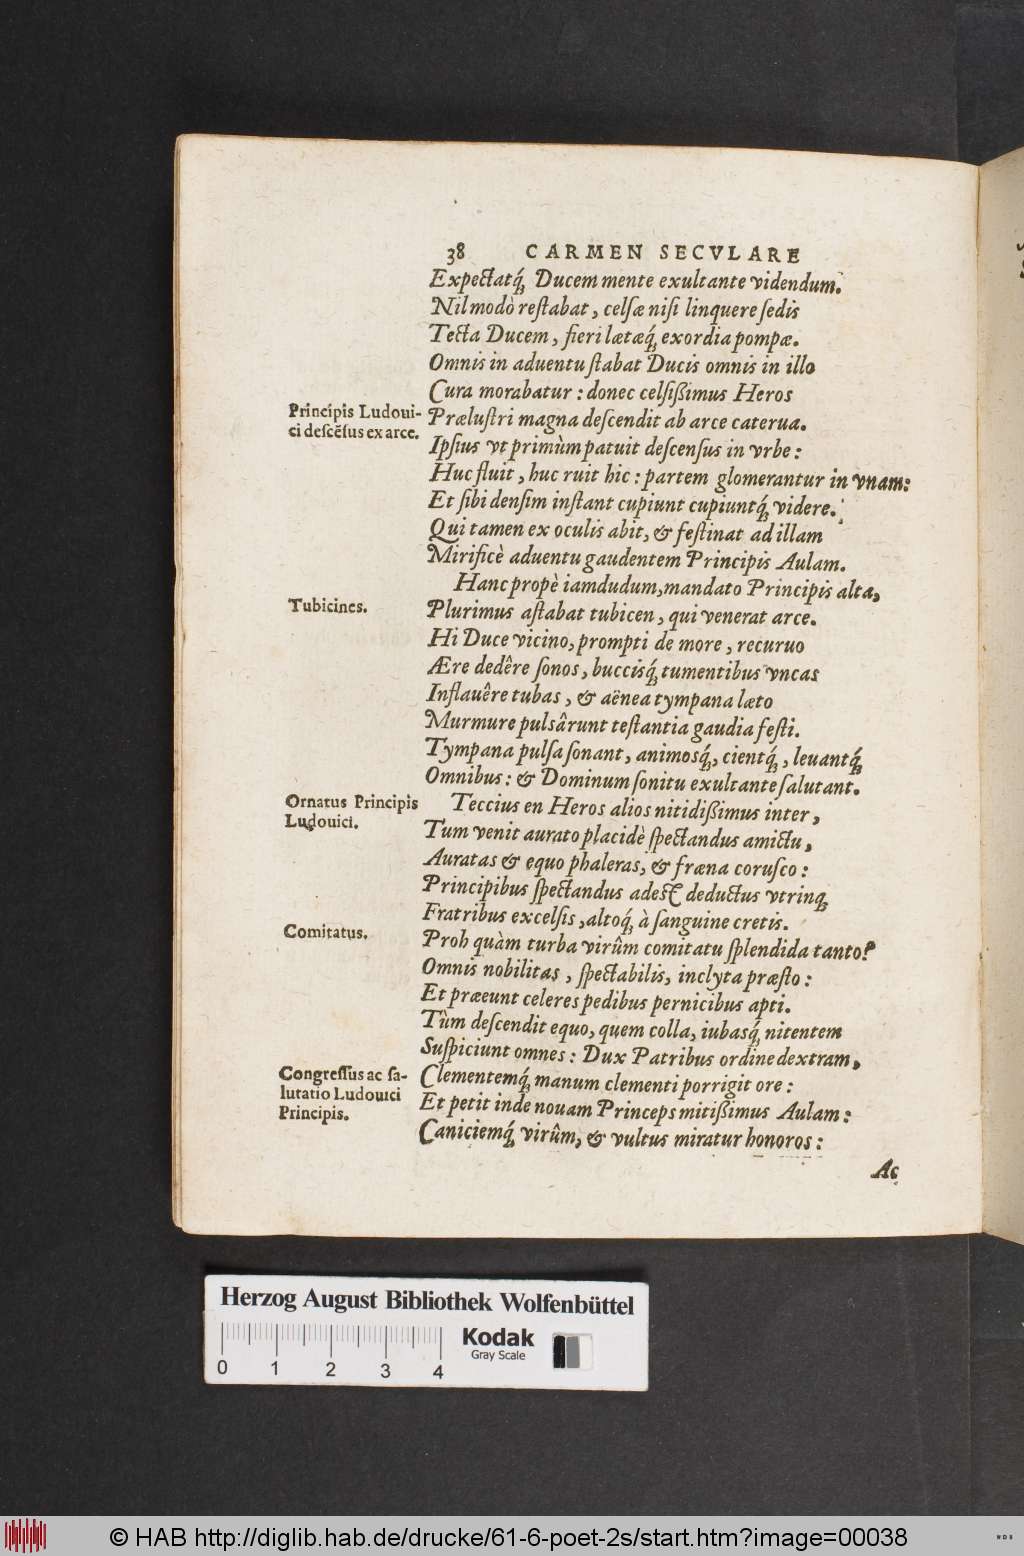 38 CARMEN SECVLARE
Expectatq́; Ducem mente exultante videndum.
Nil modò reſtabat, celſæ niſi linquere ſedis
Tecta Ducem, fieri lætæq́; exordia pompæ.
Omnis in aduentu ſtabat Ducis omnis in illo
Cura morabatur: donec celſißimus Heros
Principis Ludoui-
ci deſcẽſus ex arce.
Præluſtri magna deſcendit ab arce caterua.
Ipſius vt primùm patuit deſcenſus in vrbe:
Huc fluit, huc ruit hic: partem glomerantur in vnam:
Et ſibi denſim inſtant cupiunt cupiuntq́; videre.
Qui tamen ex oculis abit, & feſtinat ad illam
Mirificè aduentu gaudentem Principis Aulam.
Hanc propè iamdudum, mandato Principis alta,
Tubicines.
Plurimus aſtabat tubicen, qui venerat arce.
Hi Duce vicino, prompti de more, recuruo
Ære dedêre ſonos, buccisq́; tumentibus vncas
Inflauêre tubas, & aënea tympana læto
Murmure pulsârunt teſtantia gaudia feſti.
Tympana pulſa ſonant, animosq́;, cientq́;, leuantq́;
Omnibus: & Dominum ſonitu exultante ſalutant.
Ornatus Principis
Ludouici.
Teccius en Heros alios nitidißimus inter,
Tum venit aurato placidè ſpectandus amictu,
Auratas & equo phaleras, & fræna coruſco:
Principibus ſpectandus adeſt deductus vtrinq;
Fratribus excelſis, altoq́; à ſanguine cretis.
Comitatus.
Proh quàm turba virûm comitatu ſplendida tanto?
Omnis nobilitas, ſpectabilis, inclyta præſto:
Et præeunt celeres pedibus pernicibus apti.
Tùm deſcendit equo, quem colla, iubasq́; nitentem
Suſpiciunt omnes: Dux Patribus ordine dextram,
Congreſſus ac ſa-
lutatio Ludouici
Principis.
Clementemq́; manum clementi porrigit ore:
Et petit inde nouam Princeps mitißimus Aulam:
Caniciemq́; virûm, & vultus miratur honoros:
Ac
Herzog August Bibliothek Wolfenbüttel
Kodak
Gray Scale
0 1 2 3 4
© HAB http://diglib.hab.de/drucke/61-6-poet-2s/start.htm?image=00038